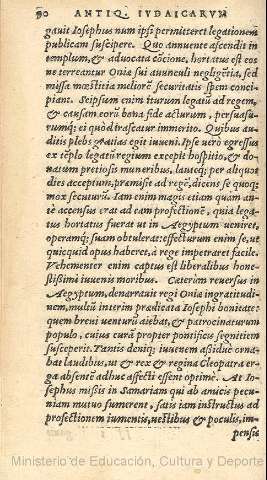 90 ANTIQ. IVDAICARVM
gauit Iosephus num ipsi permitteret legationem
publicam suscipere. Quo annuente ascendit in
templum, & aduocata cōcione, hortatus est eos
ne terreantur Oniæ sui auunculi negligētia, sed
missa mœstitia meliorē securitatis spem conci-
piant. Seipsum enim iturum legatū ad regem,
& causam eorū bona fide acturum, persuasu-
rumq́; ei quòd trascatur immeritò. Quibus au-
ditis plebs gratias egit iuueni. Ipse verò egressus
ex tēplo legatū regium excepit hospitio, & do-
natum pretiosis muneribus, lauteq́; per aliquot
dies acceptum, præmisit ad regē, dicens se quoq;
mox secuturū. Iam enim magis etiam quam an-
te accensus erat ad eam profectionē, quia lega-
tus hortatus fuerat ut in Aegyptum ueniret,
operamq́; suam obtulerat: effecturum enim se, ut
quicquid opus haberet, à rege impetraret facile.
Vehementer enim captus est liberalibus hone-
stißimi iuuenis moribus. Cæterùm reuersus in
Aegyptum, denarrauit regi Oniæ ingratitudi-
nem, multū interim prædicata Iosephi bonitate:
quem breui uenturū aiebat, & patrocinaturum
populo, cuius curā propter pontificis segnitiem
susceperit. Tantis deniq; iuuenem aßiduè orna-
bat laudibus, ut & rex & regina Cleopatra er-
ga absentē adhuc affecti essent optimè. At Io-
sephus mißis in Samariam qui ab amicis pecu-
niam mutuo sumerent, satis iam instructus ad
profectionem iumentis, uestibus & poculis, im-
pensis
Ministerio de Educación, Cultura y Deporte